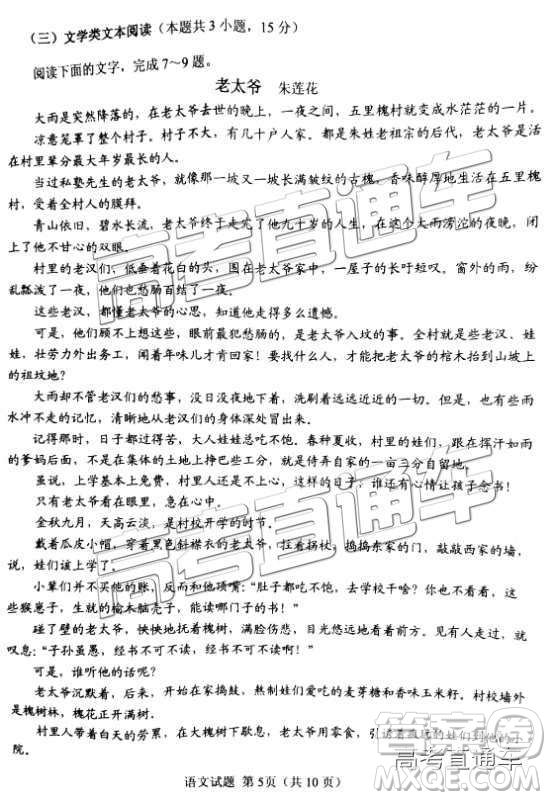 （三）文学类文本阅读（本题共3小题，15分）
阅读下面的文字，完成7～9题。
老太爷 朱莲花
大雨是突然降落的，在老太爷去世的晚上，一夜之间，五里槐村就变成水茫茫的一片。
凉意笼罩了整个村子。村子不大，有几十户人家。都是朱姓老祖宗的后代，老太爷是活
在村里辈分最大年岁最长的人。
当过私塾先生的老太爷，就像那一坡又一坡长满皱纹的古槐，香味醇厚地生活在五里槐
村，接受着全村人的膜拜。
青山依旧，碧水长流，老太爷终于走完了他九十岁的人生，在这个大雨滂沱的夜晚，闭
上了他不甘心的双眼。
村里的老汉们，低垂着花白的头，围在老太爷家中，一屋子的长吁短叹。窗外的雨，纷
乱瓢泼了一夜，他们也愁肠百结了一夜。
这些老汉，都懂老太爷的心思，知道他走得多么遗憾。
可是，他们顾不上想这些，眼前最犯愁肠的，是老太爷入坟的事。全村就是一些老汉、娃
娃，壮劳力外出务工，闻着年味儿才肯回家！要找些什么人，才能把老太爷的棺木抬到山坡上
的祖坟地？
大雨却不管老汉们的愁事，没日没夜地下着，洗刷着远远近近的一切。但是，也有些雨
水冲不走的记忆，清晰地从老汉们的身体深处冒出来。
记得那时，日子都过得苦，大人娃娃总吃不饱。春种夏收，村里的娃们，跟在挥汗如雨
的爹妈后面，不是在集体的土地上挣巴些工分，就是在侍弄自家的一亩三分自留地。
虽说，上学基本上免费，村里人还是不上心，这样的日子，谁还有心情让孩子念书！
只有老太爷看在眼里，急在心中。
金秋九月，天高云淡，是村校开学的季节。
戴着瓜皮小帽，穿着黑色斜襟衣的老太爷，拄着拐杖，捣捣东家的门，敲敲西家的墙，
说，娃们该上学了。
小辈们并不买他的账，反而和他理论：“肚子都吃不饱，去学校干啥？你看看，这
些猴崽子，生成的榆木脑壳子，能读哪门子的书！”
碰了壁的老太爷，怏怏地抚摸着槐树，满脸伤悲，目光深深地看着着前方。见人来，就
叹息：“子孙虽愚，经书不可不读，经书不可不读啊！”
可是，谁听他的话呢？
老太爷沉默着，后来，开始在家捣鼓，熬制些老百姓爱吃的麦芽糖和黄豆糕。村校墙外
是槐树林，槐花正开满树。
村里人带着白天的劳累，在大槐树下歇息，老太爷用零食，引诱着疯玩的娃们到他的小
院。
语文试题 第5页（共10页）
高考直通车
高考直通车
高考直通车
MXQE.COM